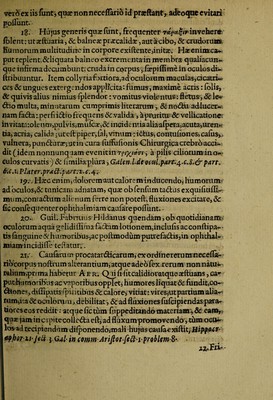 verò ex iis sunt, quæ non necessariò id præstant, adeoque evitari
possunt.
18. Hujus generis quæ sunt, frequenter vapores invehere
solent: ut æstuaria, & balneæ præcalidæ, aut cibo, & crudorum
humorum multitudine in corpore existente, initæ. Hæ enim ca-
put replent, & liquata balneo excrementa in membra quæcunque
infirma demandant: cruda in corpus, sæpissimè in oculos di-
stribuuntur. Item collyria fortiora, ad oculorum maculas, cicatri-
ces & ungues extergendos applicita: fumus, maximè acris: solis,
& quivis alius nimius splendor: vominis violentus: fletus, & le-
ctio multa, minutarum cumprimis literarum, & noctu ad lucer-
nam facta: per si dictio frequens & valida, à pruritu & vellicatione
invita: oleum, pulvis, muscæ, & incidentia alia aspera, acuta, uren-
tia, acria, calida, ut est piper, sal, vinum: ictus, contusiones, casus,
vulnera, puncturæ, ut in cura suffusionis Chirurgica crebrò acci-
dit (idem nonnunquam evenit à pilis cilionum in o-
culos curvatis) & similia plura, Galen. l. de ocul. part. 4. c. 8. & part.
dict. 2. Plater. pract. part. 2. c. 4.
19. Hæc enim, dolorem aut calorem inducendo, humorum
ad oculos, & tunicam adnatam, quæ ob sensum tactus exquisitissi-
mum, contactum alienum ferre non potest, fluxiones excitare, &
sic consequenter ophthalmiam causare possunt.
20. Guil. Fabricius Hildanus quendam, ob quotidianam
oculorum aqua gelidissima factam lotionem, inclusis ac constipa-
tis sanguine & humoribus, ac postmodùm putrefactis, in ophthal-
miam incidisse testatur.
21. Causarum procatarcticarum, ex ordine rerum necessa-
riò corpus nostrum alterantium, atque adeò sex rerum non natu-
ralium, prima habetur AER. Qui si sit calidior atque æstuans, ca-
put humoribus ac vaporibus opplet, humores liquat & fundit, co-
ctiones, dissipatis spiritibus & calore, vitiat: vires, ut partium alia-
rum, ita & oculorum, debilitat, & ad fluxiones suscipiendas para-
tiores eos reddit: atque sic tùm suppeditando materiam, & eam,
quæ jam in capite collecta est, ad fluxum promovendo, tùm ocu-
los ad recipiendum disponendo, mali hujus causa existit, Hippocr.
aphor. 21. sect. 3. Gal. in comm. Aristot. sect. 1. problem. 8.
22. Fri-